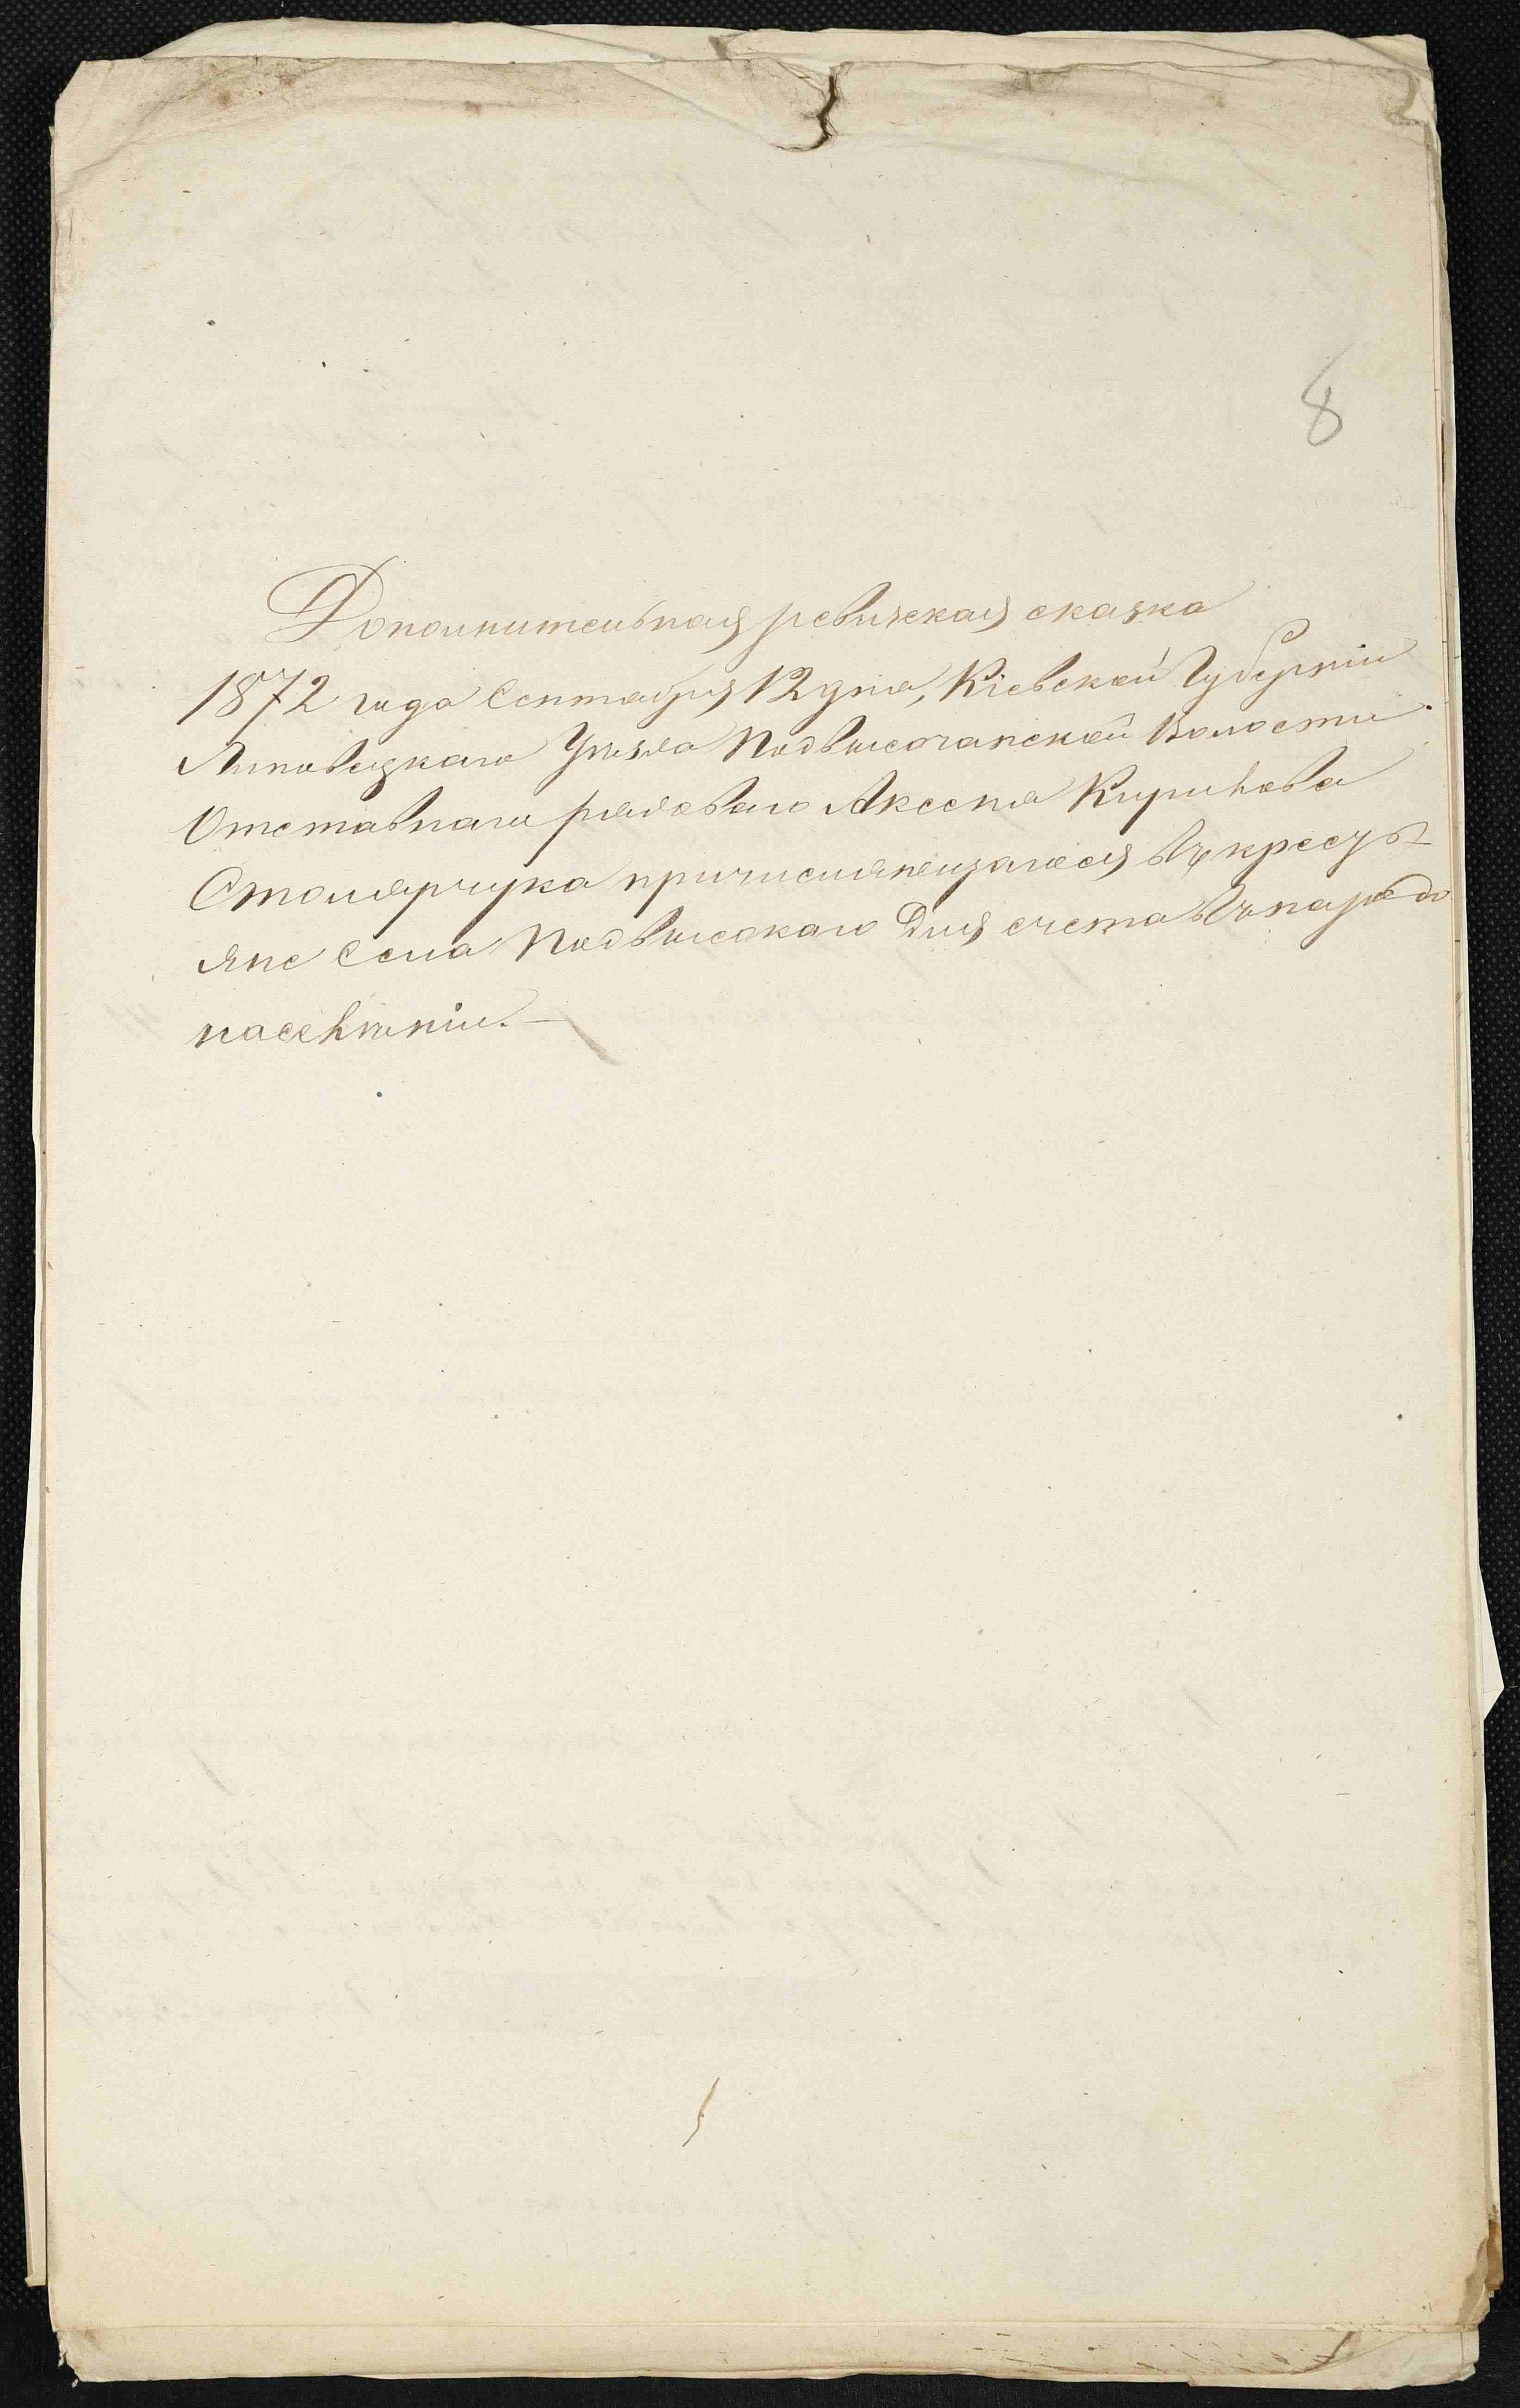 8
Дополнительная ревизская сказка
1872 года Сентября 12 дня, Кіевской Губерніи
Липовецкаго Уѣзда Подвысочанской Волости
Отставнаго рядоваго Аксена Кирилова
Столярчука причисляющагося въ кресть
яне Села Подвысокаго Для счета въ народо
населѣніи.—